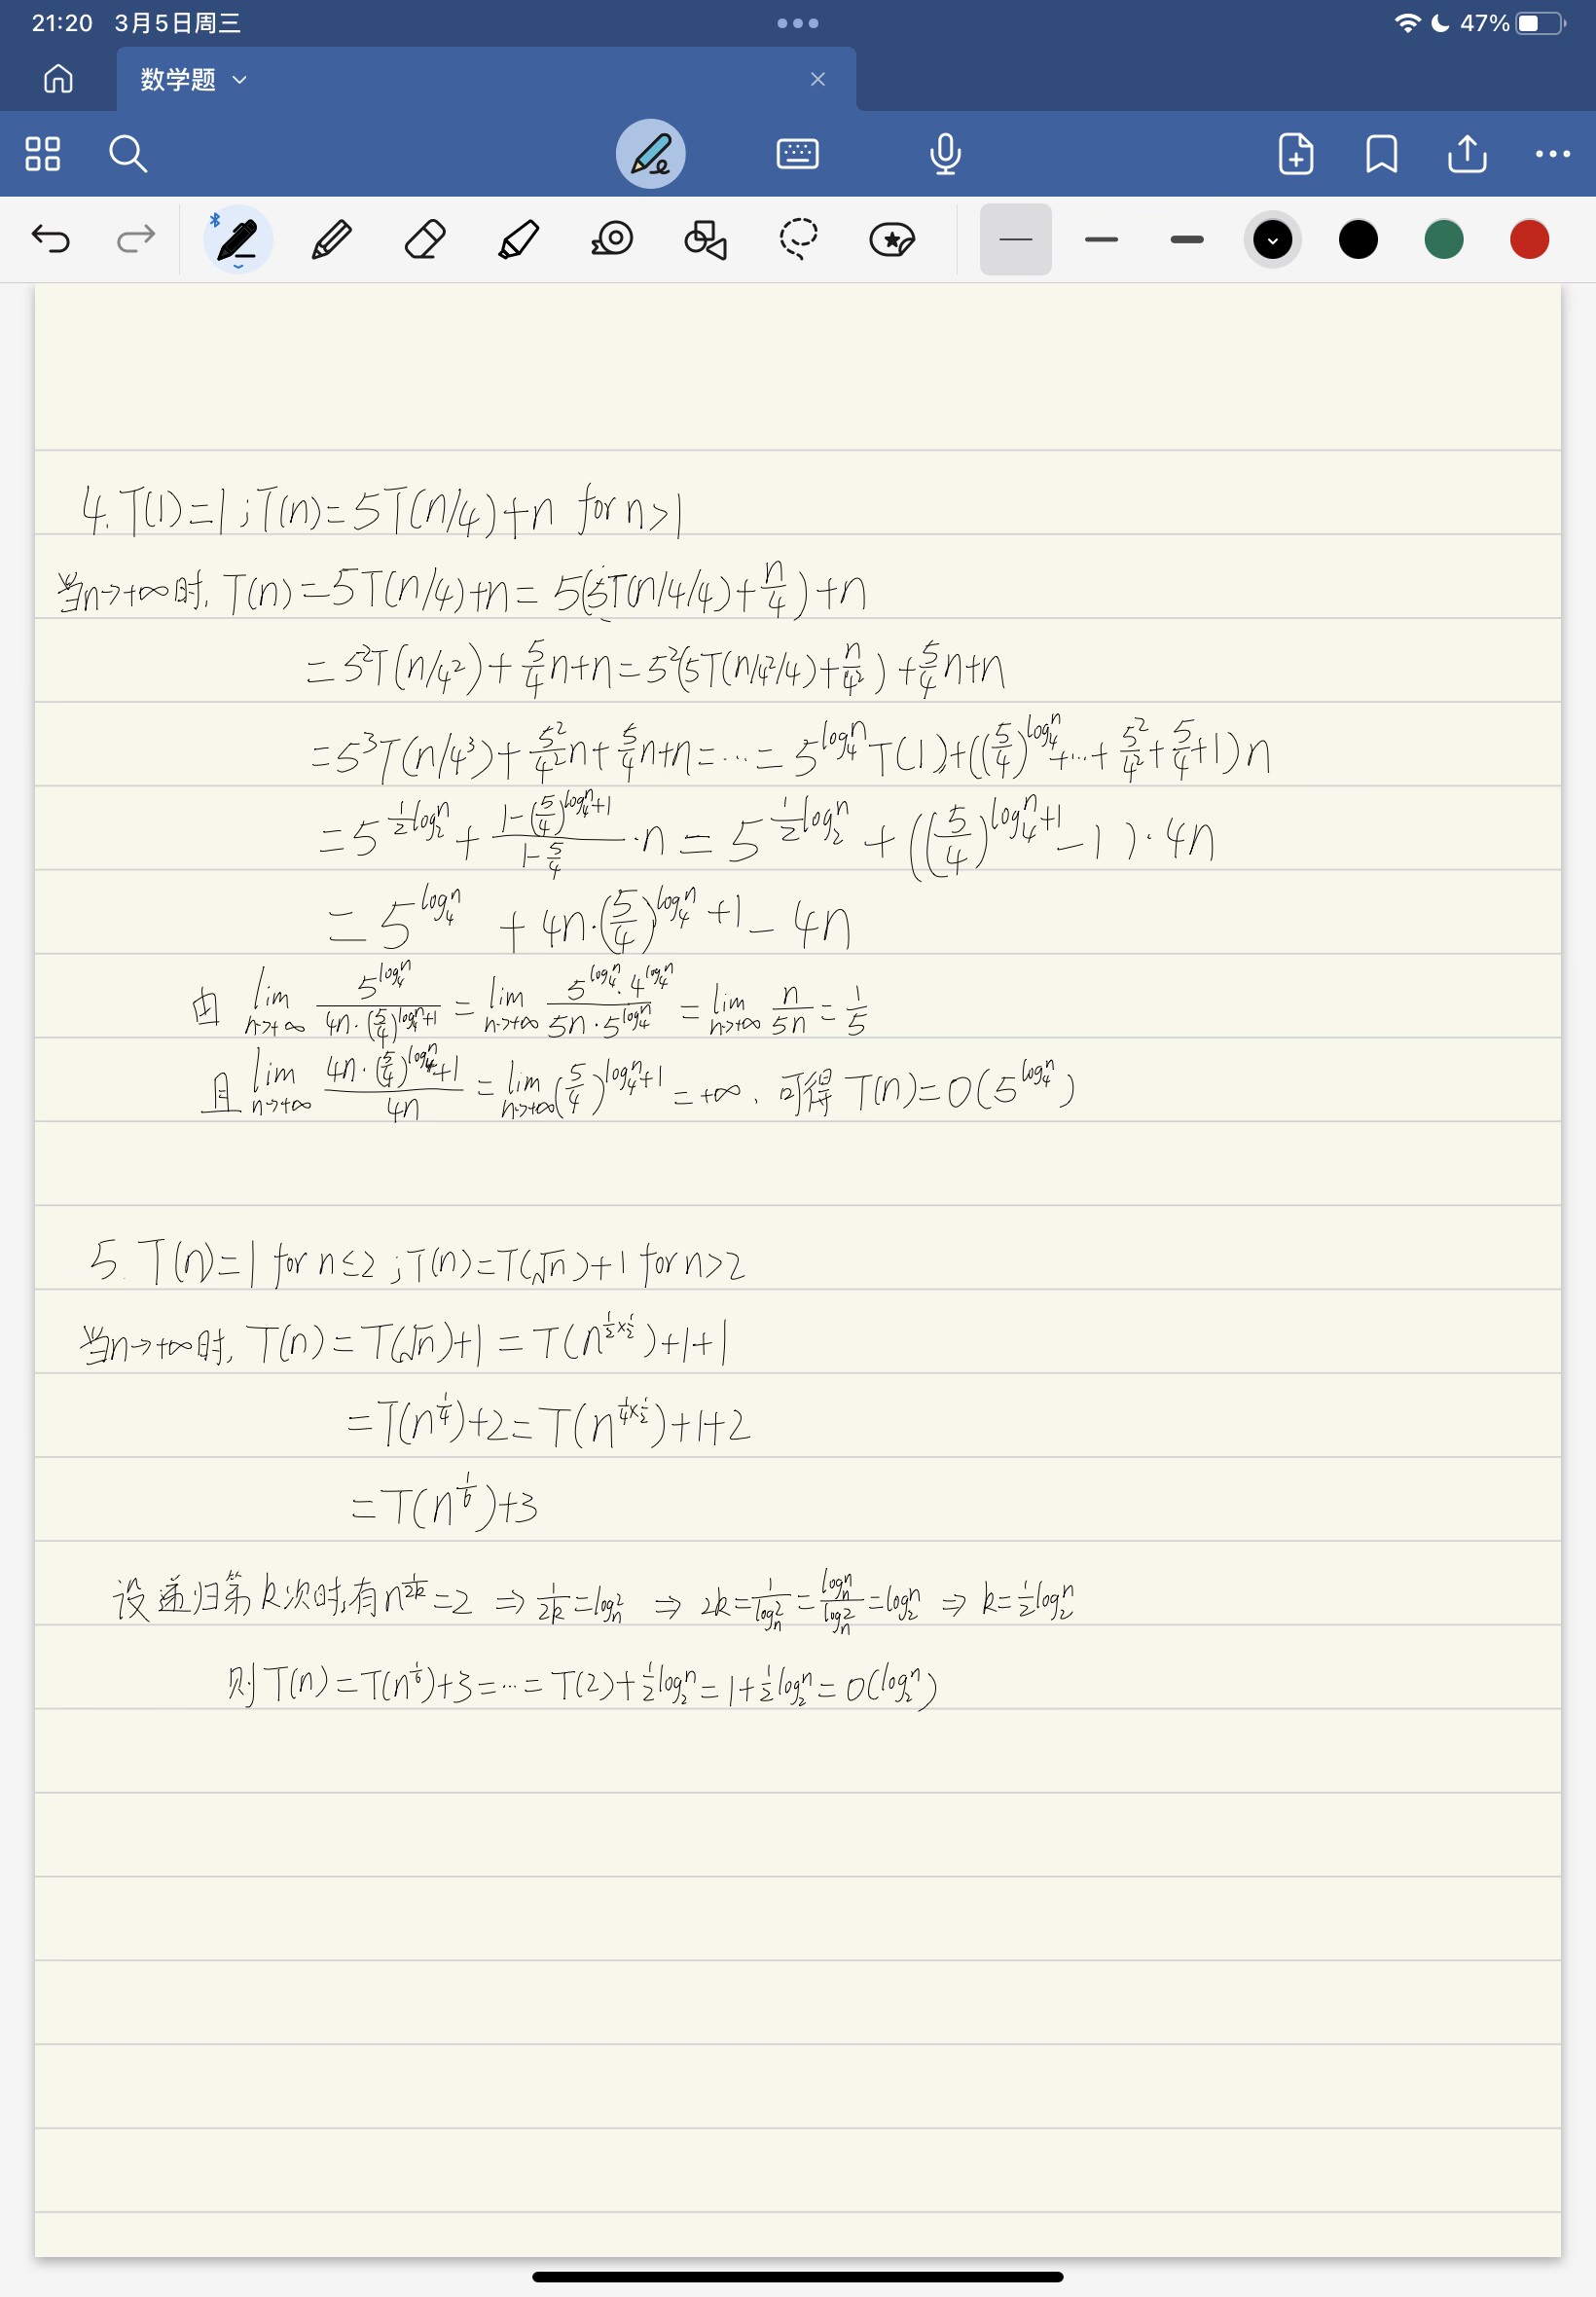 21:20 3月5日周三
47%
数学题
4. T(1)=1 ; T(n)=5T(n/4)+n for n>1
当n→+∞时, T(n) = 5T(n/4)+n = 5(5T(n/4/4)+n/4)+n
= 5²T(n/4²)+5/4n+n = 5²(5T(n/4²/4)+n/4²)+5/4n+n
= 5³T(n/4³)+5²/4²n+5/4n+n = ⋯ = 5^(log₄n)T(1)+((5/4)^(log₄n)+⋯+5²/4²+5/4+1)n
= 5^(1/2log₂n) + (1-(5/4)^(log₄n+1))/(1-5/4)·n = 5^(1/2log₂n) + ((5/4)^(log₄n+1)-1)·4n
= 5^(log₄n) + 4n·(5/4)^(log₄n+1) - 4n
由 lim n→+∞ 5^(log₄n)/(4n·(5/4)^(log₄n+1)) = lim n→+∞ (5^(log₄n)·4^(log₄n))/(5n·5^(log₄n)) = lim n→+∞ n/5n = 1/5
且 lim n→+∞ (4n·(5/4)^(log₄n+1))/4n = lim n→+∞ (5/4)^(log₄n+1) = +∞, 可得 T(n)=O(5^(log₄n))
5. T(n)=1 for n≤2 ; T(n)=T(√n)+1 for n>2
当n→+∞时, T(n) = T(√n)+1 = T(n^(1/2×1/2))+1+1
= T(n^(1/4))+2 = T(n^(1/4×1/2))+1+2
= T(n^(1/6))+3
设递归第k次时,有n^(1/2k)=2 ⇒ 1/2k=logₙ2 ⇒ 2k=1/logₙ2=logₙn/logₙ2=log₂n ⇒ k=1/2log₂n
则T(n)=T(n^(1/6))+3=⋯=T(2)+1/2log₂n=1+1/2log₂n=O(log₂n)